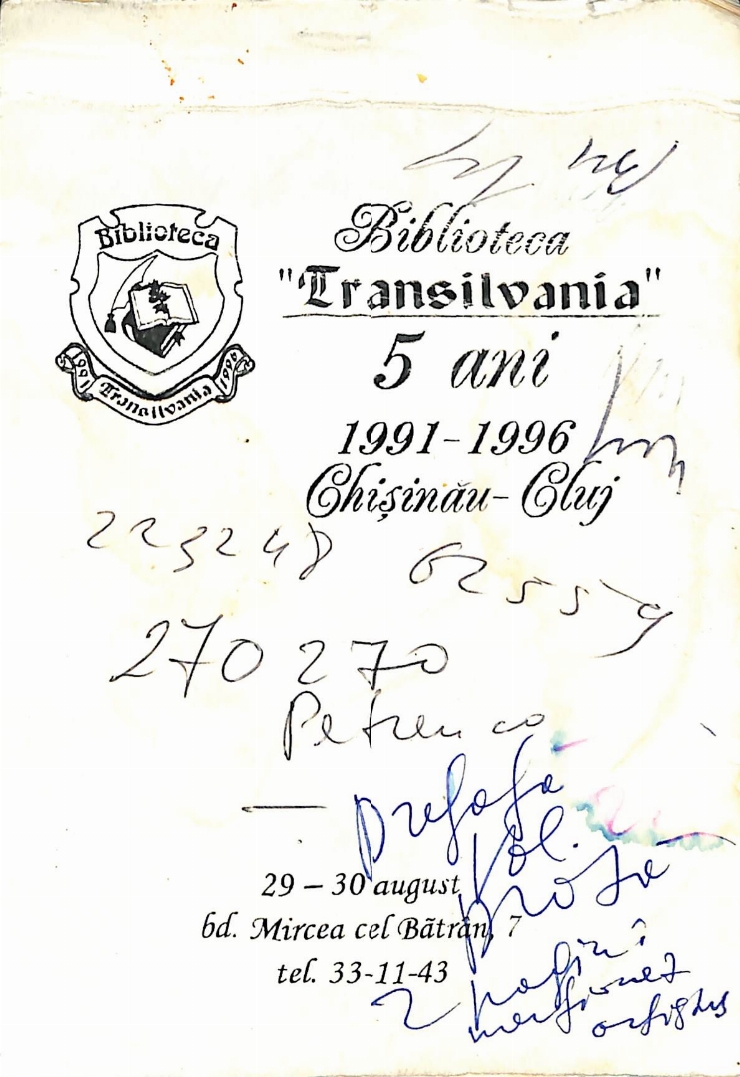 Biblioteca
1991 Transilvania 1996
Biblioteca
"Transilvania"
5 ani
1991-1996
Chișinău-Cluj
223248 62559
270270
Petrenco
prefața
Vol.
proza
29 – 30 august
bd. Mircea cel Bãtrân, 7
tel. 33-11-43
2 pagini